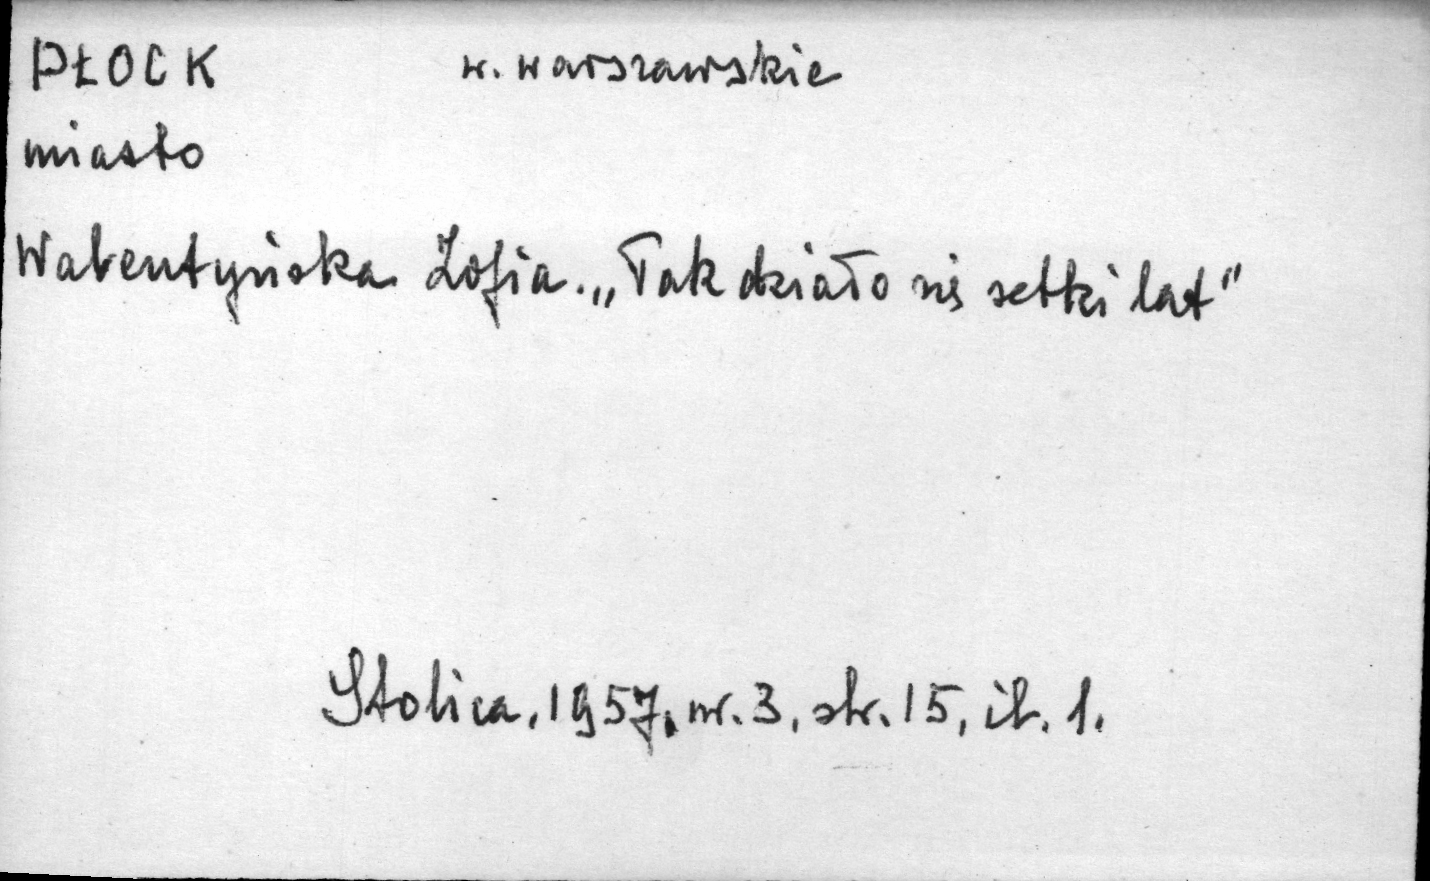 PŁOCK w. warszawskie
miasto
Walentyńska Zofia. „Tak działo się setki lat"
Stolica, 1957, nr. 3, str. 15, il. 1.